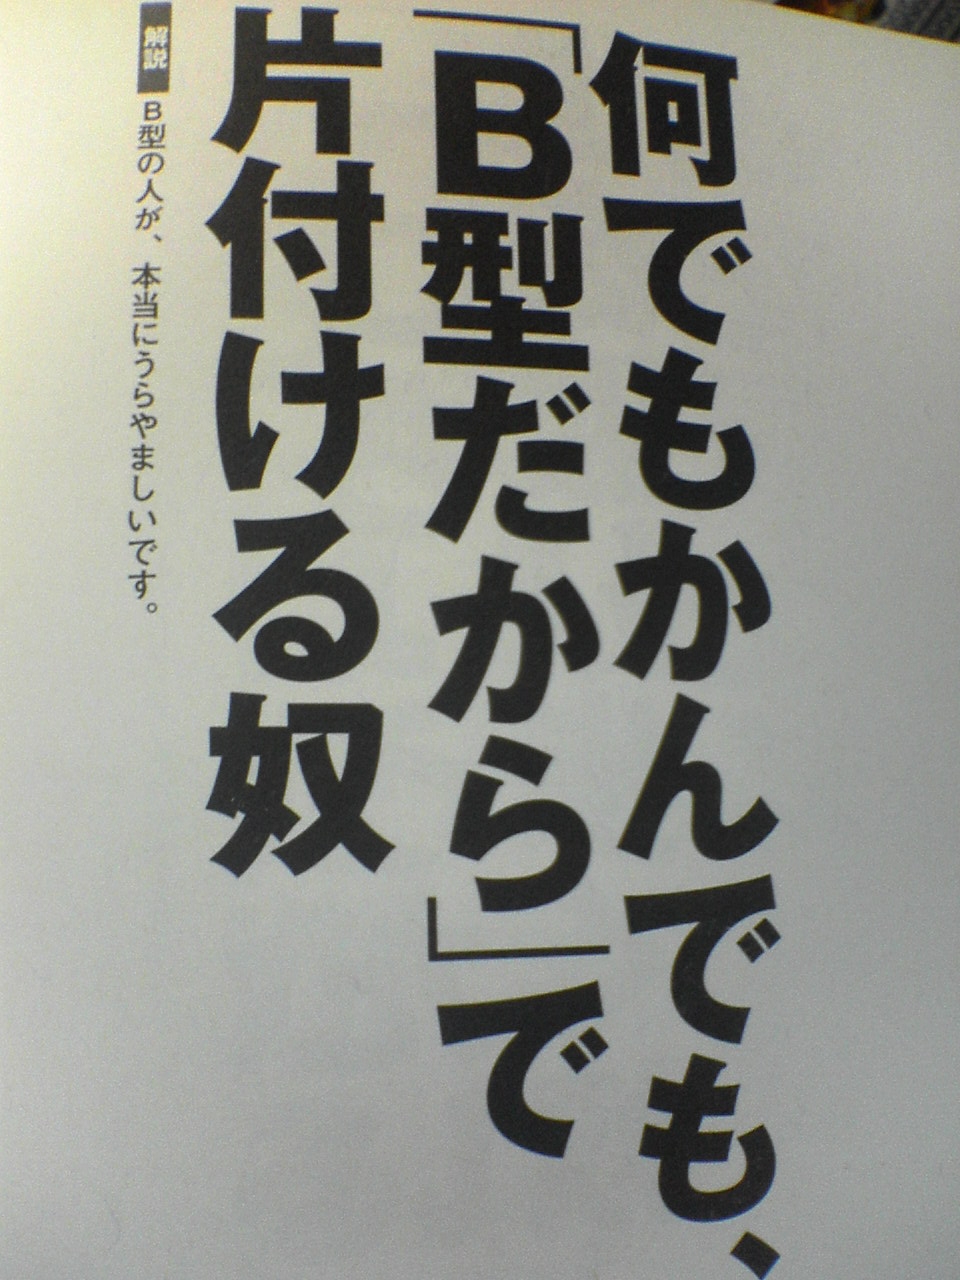 何でもかんでも、
「B型だから」で
片付ける奴
解説 B型の人が、本当にうらやましいです。